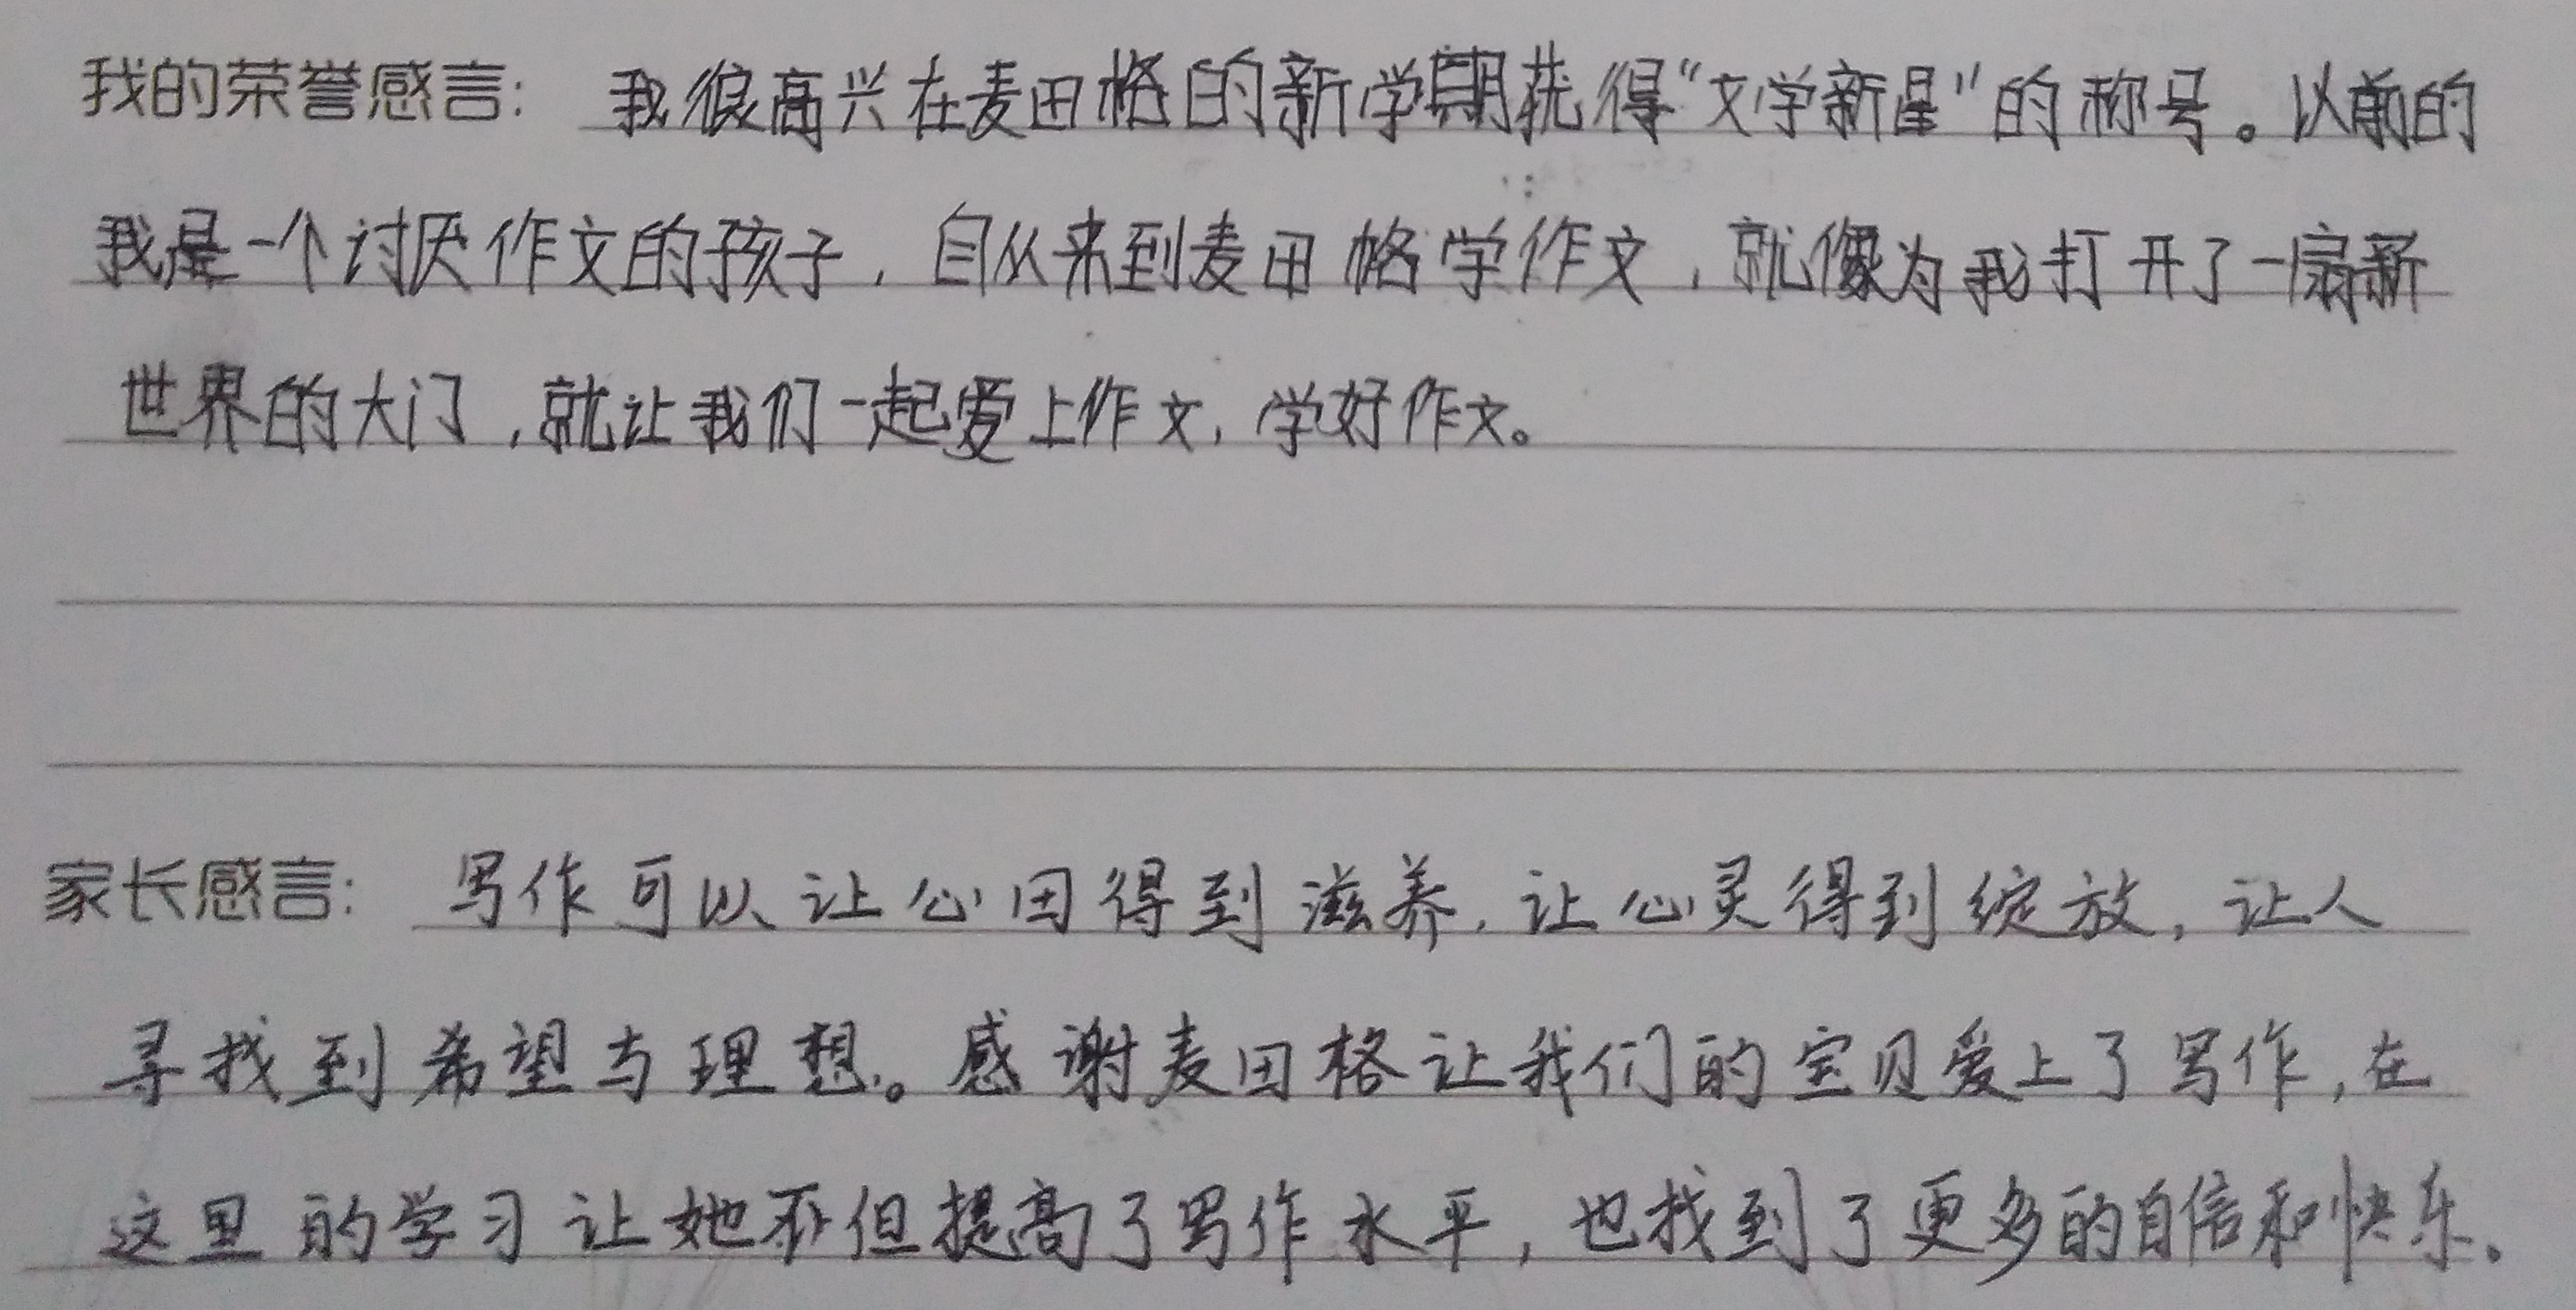 我的荣誉感言: 我很高兴在麦田格的新学期获得“文学新星”的称号。以前的
我是一个讨厌作文的孩子，自从来到麦田格学作文，就像为我打开了一扇新
世界的大门，就让我们一起爱上作文，学好作文。
家长感言: 写作可以让心田得到滋养，让心灵得到绽放，让人
寻找到希望与理想。感谢麦田格让我们的宝贝爱上了写作，在
这里的学习让她不但提高了写作水平，也找到了更多的自信和快乐。